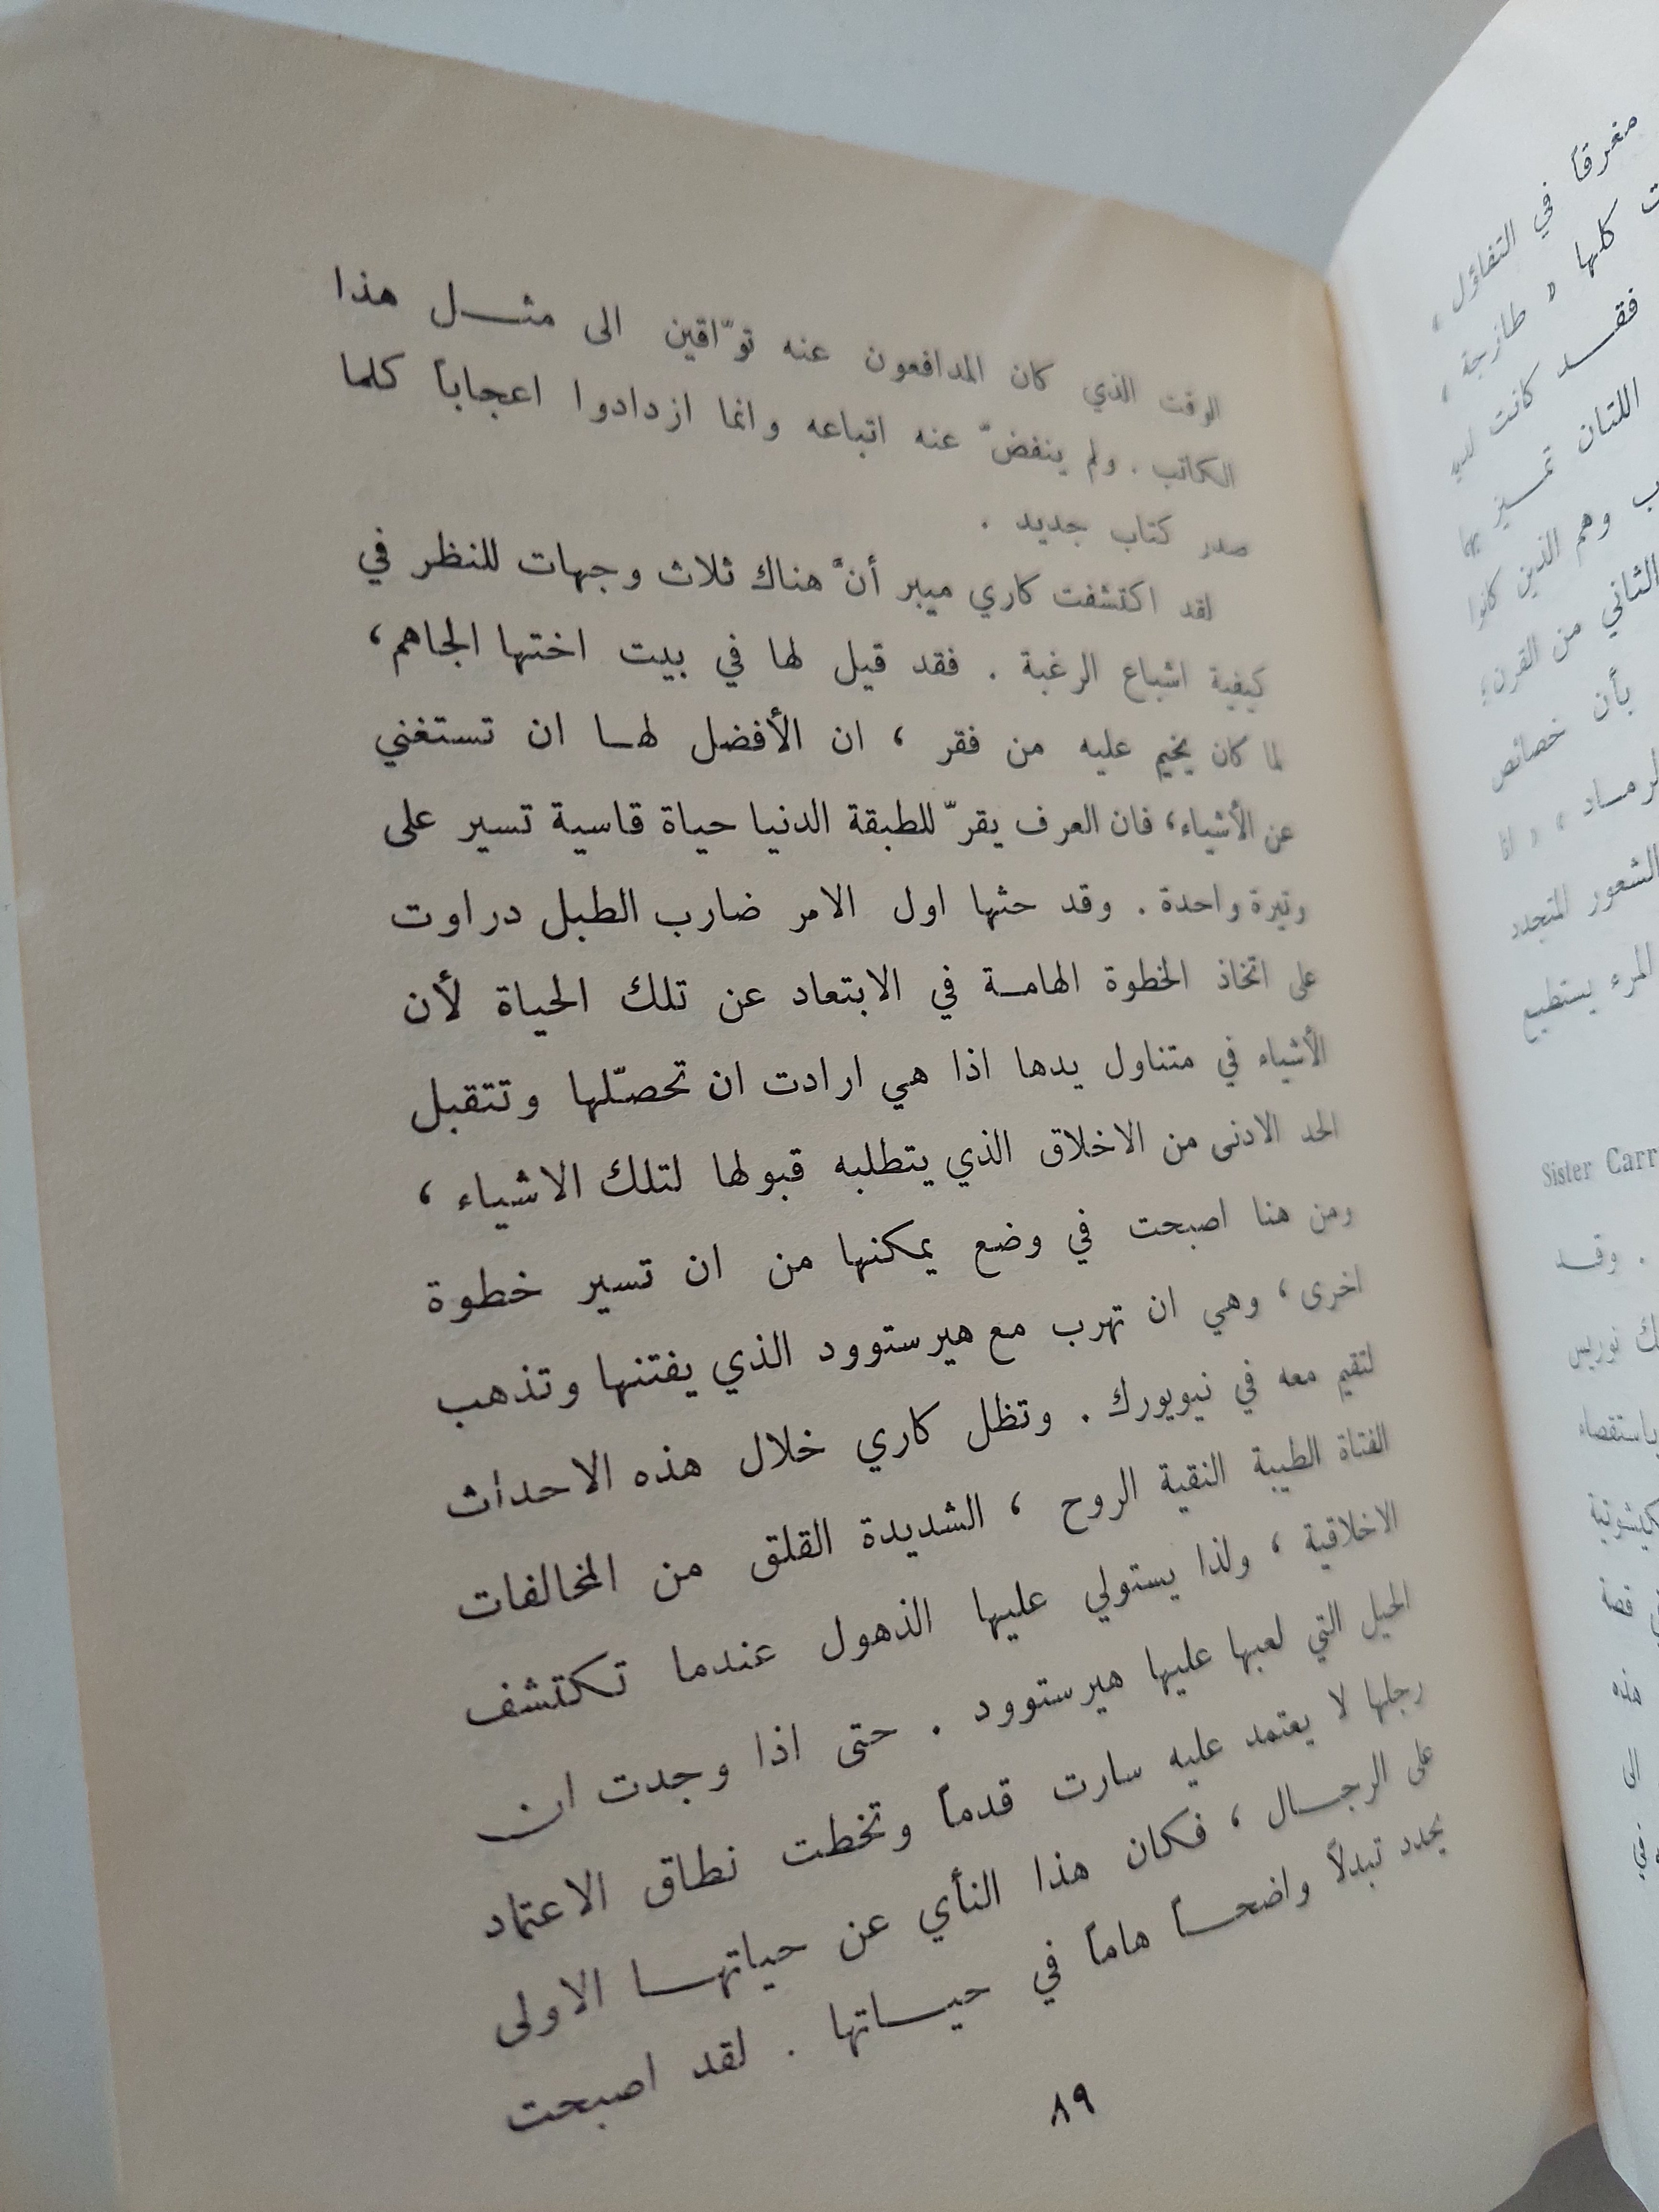 الوقت الذي كان المدافعون عنه توّاقين الى مثــل هذا
الكاتب . ولم ينفضّ عنه اتباعه وانما ازدادوا اعجاباً كلما
صدر كتاب جديد .
لقد اكتشفت كاري ميبر أنّ هناك ثلاث وجهات للنظر في
كيفية اشباع الرغبة . فقد قيل لها في بيت اختها الجاهم ،
لما كان يخيم عليه من فقر ، ان الأفضل لهــا ان تستغني
عن الأشياء ، فان العرف يقرّ للطبقة الدنيا حياة قاسية تسير على
وتيرة واحدة . وقد حثها اول الامر ضارب الطبل دراوت
على اتخاذ الخطوة الهامــة في الابتعاد عن تلك الحياة لأن
الأشياء في متناول يدها اذا هي ارادت ان تحصّلها وتتقبل
الحد الادنى من الاخلاق الذي يتطلبه قبولها لتلك الاشياء ،
ومن هنا اصبحت في وضع يمكنها من ان تسير خطوة
اخرى ، وهي ان تهرب مع هيرستوود الذي يفتنها وتذهب
لتقيم معه في نيويورك . وتظل كاري خلال هذه الاحداث
الفتاة الطيبة النقية الروح ، الشديدة القلق من المخالفات
الاخلاقية ، ولذا يستولي عليها الذهول عندما تكتشف
الحيل التي لعبها عليها هيرستوود . حتى اذا وجدت ان
رجلها لا يعتمد عليه سارت قدماً وتخطت نطاق الاعتماد
على الرجــال ، فكان هذا النأي عن حياتهــا الاولى
يحدد تبدلاً واضحــاً هاماً في حيــاتها . لقد اصبحت
٨٩
مغرقاً في التفاؤل ،
كلها « طازجة ،
فقــد كانت لديه
اللتان تمــيز بها
وهم الذين كانوا
الثاني من القرن ،
بأن خصائص
الشعور المتجدد
المرء يستطيع
Sister Carr
. وقــد
نوريس
باستقصاء
قصة
هذه
الى
في